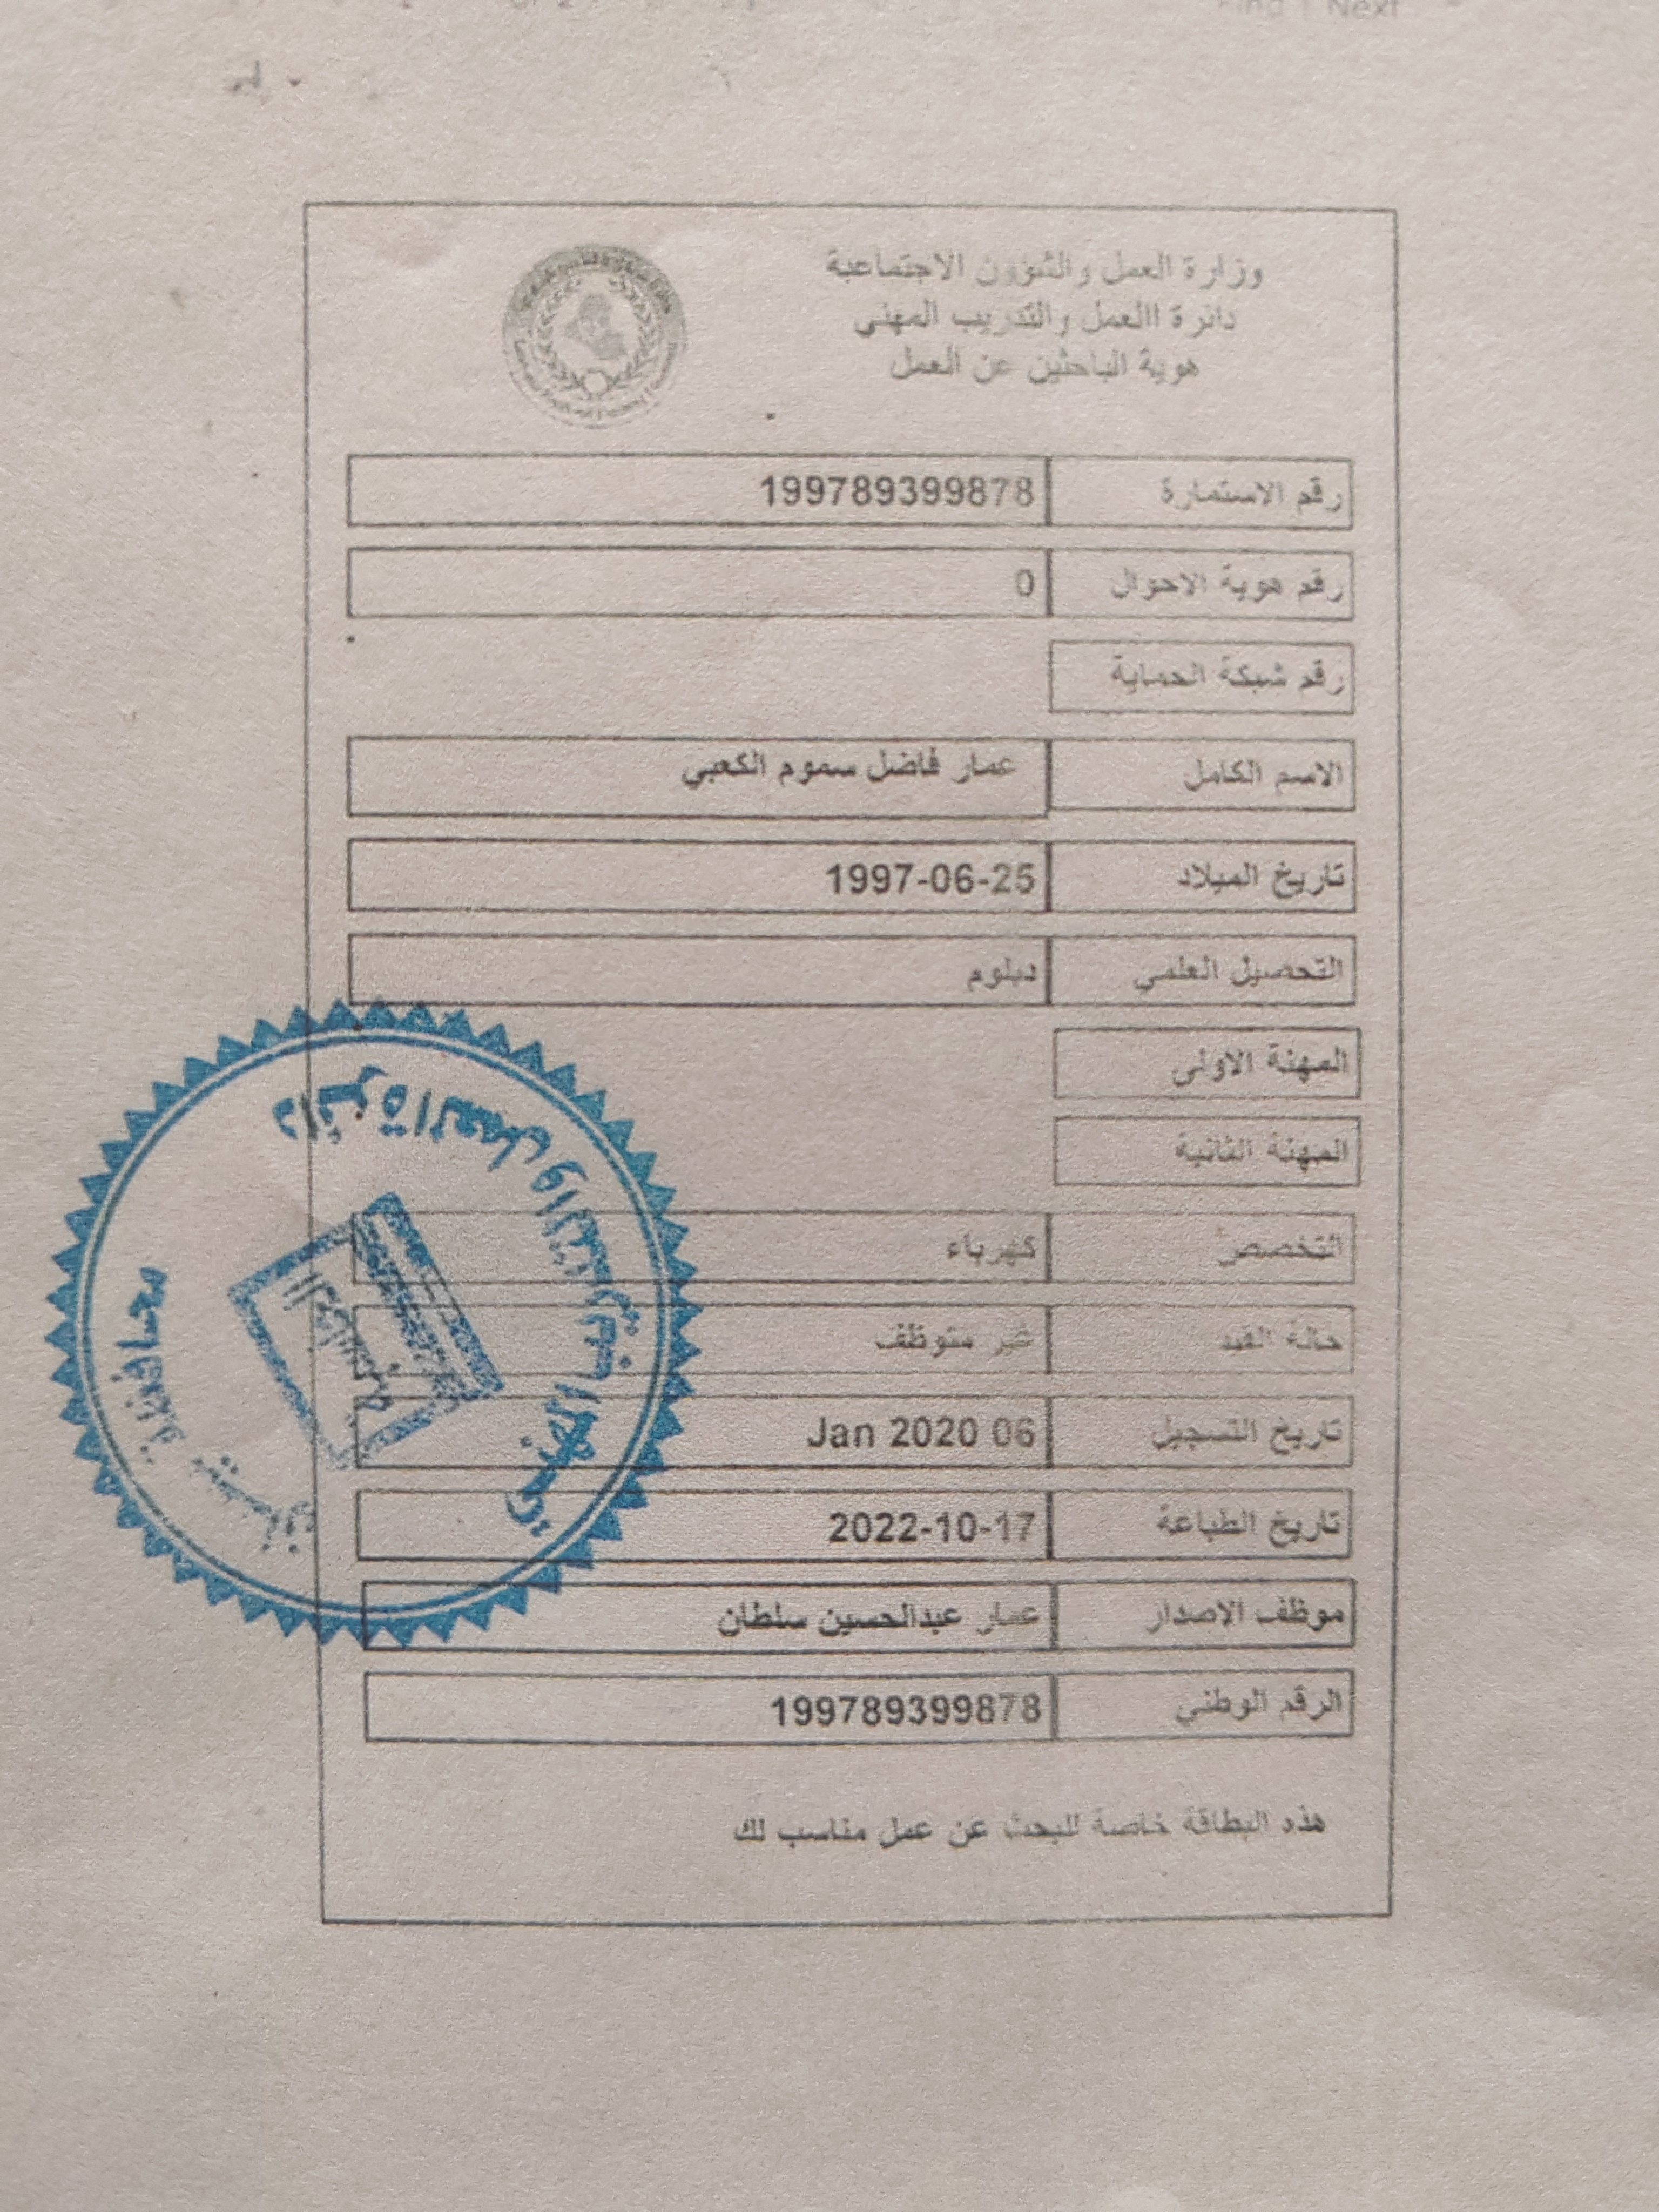 Find | Next
وزارة العمل والشؤون الاجتماعية
دائرة االعمل والتدريب المهني
هوية الباحثين عن العمل
رقم الاستمارة 199789399878
رقم هوية الاحوال 0
رقم شبكة الحماية
الاسم الكامل عمار فاضل سموم الكعبي
تاريخ الميلاد 1997-06-25
التحصيل العلمي دبلوم
المهنة الاولى
المهنة الثانية
التخصص كهرباء
حالة القيد غير متوظف
تاريخ التسجيل 06 Jan 2020
تاريخ الطباعة 2022-10-17
موظف الاصدار عمار عبدالحسين سلطان
الرقم الوطني 199789399878
هذه البطاقة خاصة للبحث عن عمل مناسب لك
دائرة العمل والتدريب المهني
محافظة